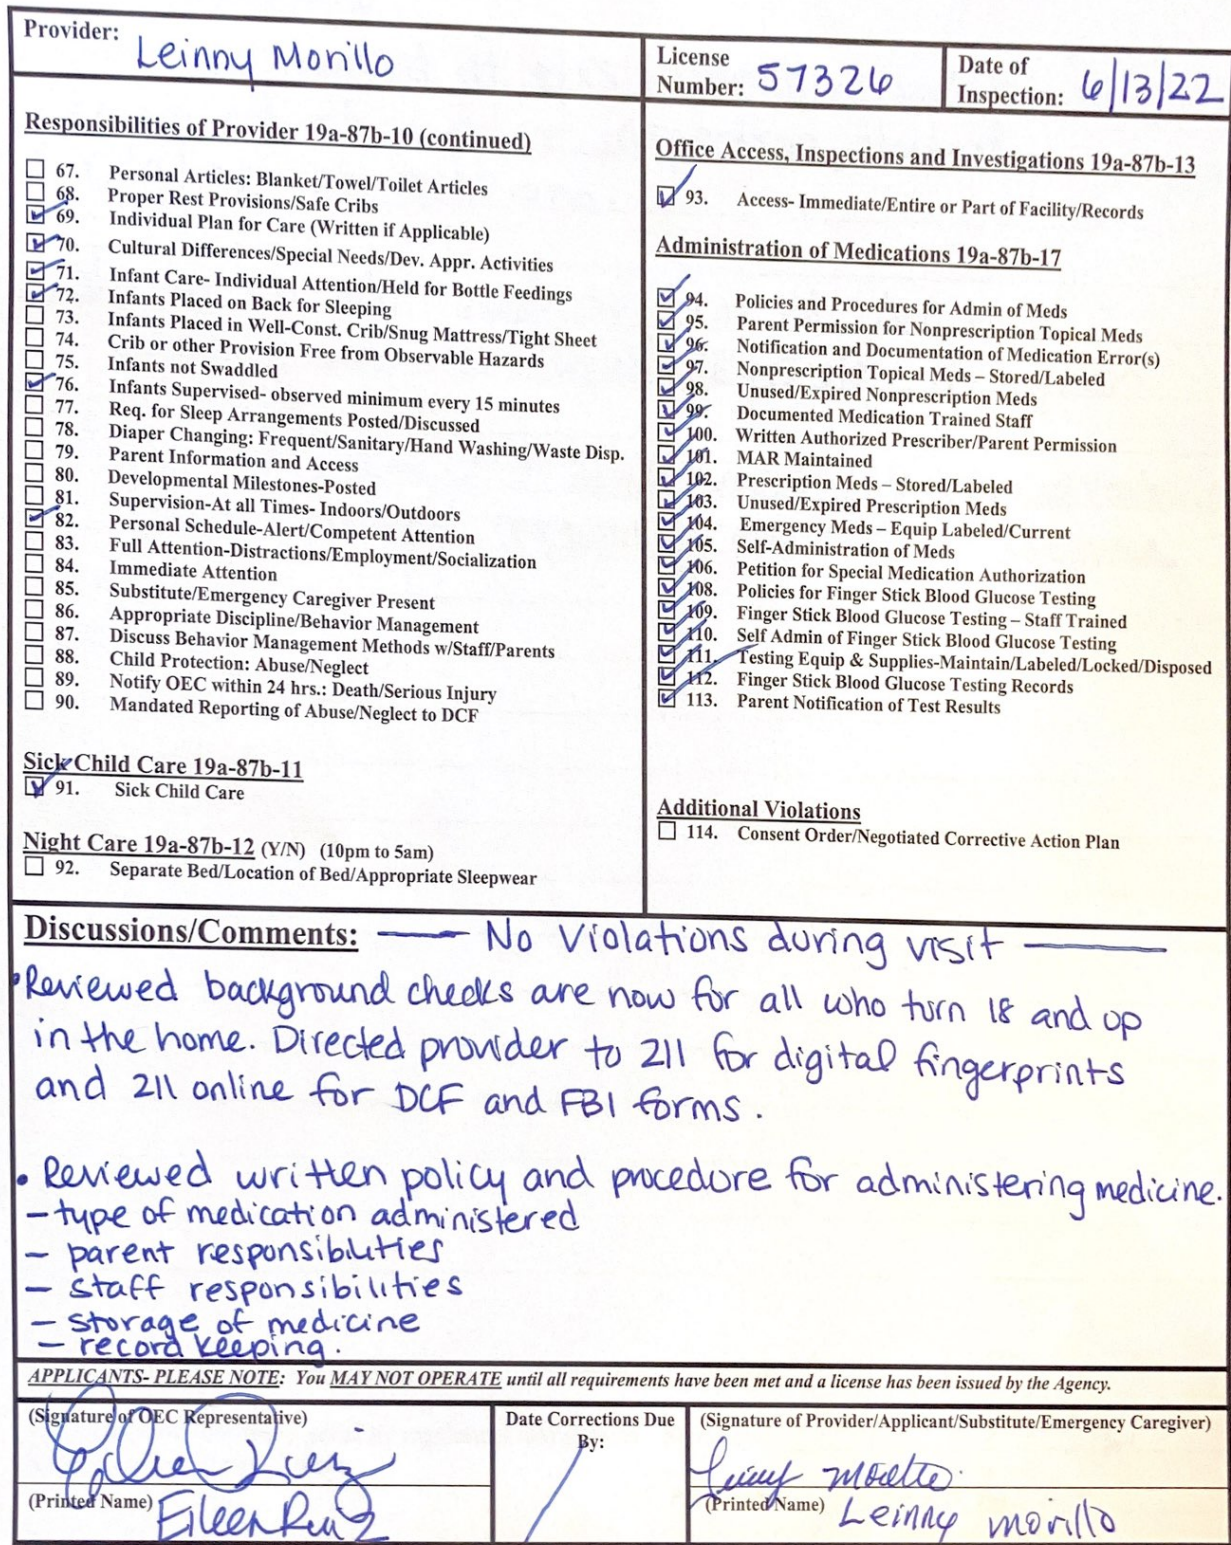 Provider: Leinny Morillo
License Number: 57326
Date of Inspection: 6/13/22
Responsibilities of Provider 19a-87b-10 (continued)
☐ 67. Personal Articles: Blanket/Towel/Toilet Articles
☐ 68. Proper Rest Provisions/Safe Cribs
☑ 69. Individual Plan for Care (Written if Applicable)
☑ 70. Cultural Differences/Special Needs/Dev. Appr. Activities
☑ 71. Infant Care- Individual Attention/Held for Bottle Feedings
☑ 72. Infants Placed on Back for Sleeping
☐ 73. Infants Placed in Well-Const. Crib/Snug Mattress/Tight Sheet
☐ 74. Crib or other Provision Free from Observable Hazards
☐ 75. Infants not Swaddled
☑ 76. Infants Supervised- observed minimum every 15 minutes
☐ 77. Req. for Sleep Arrangements Posted/Discussed
☐ 78. Diaper Changing: Frequent/Sanitary/Hand Washing/Waste Disp.
☐ 79. Parent Information and Access
☐ 80. Developmental Milestones-Posted
☐ 81. Supervision-At all Times- Indoors/Outdoors
☑ 82. Personal Schedule-Alert/Competent Attention
☐ 83. Full Attention-Distractions/Employment/Socialization
☐ 84. Immediate Attention
☐ 85. Substitute/Emergency Caregiver Present
☐ 86. Appropriate Discipline/Behavior Management
☐ 87. Discuss Behavior Management Methods w/Staff/Parents
☐ 88. Child Protection: Abuse/Neglect
☐ 89. Notify OEC within 24 hrs.: Death/Serious Injury
☐ 90. Mandated Reporting of Abuse/Neglect to DCF
Sick Child Care 19a-87b-11
☑ 91. Sick Child Care
Night Care 19a-87b-12 (Y/N) (10pm to 5am)
☐ 92. Separate Bed/Location of Bed/Appropriate Sleepwear
Office Access, Inspections and Investigations 19a-87b-13
☑ 93. Access- Immediate/Entire or Part of Facility/Records
Administration of Medications 19a-87b-17
☑ 94. Policies and Procedures for Admin of Meds
☑ 95. Parent Permission for Nonprescription Topical Meds
☑ 96. Notification and Documentation of Medication Error(s)
☑ 97. Nonprescription Topical Meds – Stored/Labeled
☑ 98. Unused/Expired Nonprescription Meds
☑ 99. Documented Medication Trained Staff
☑ 100. Written Authorized Prescriber/Parent Permission
☑ 101. MAR Maintained
☑ 102. Prescription Meds – Stored/Labeled
☑ 103. Unused/Expired Prescription Meds
☑ 104. Emergency Meds – Equip Labeled/Current
☑ 105. Self-Administration of Meds
☑ 106. Petition for Special Medication Authorization
☑ 108. Policies for Finger Stick Blood Glucose Testing
☑ 109. Finger Stick Blood Glucose Testing – Staff Trained
☑ 110. Self Admin of Finger Stick Blood Glucose Testing
☑ 111. Testing Equip & Supplies-Maintain/Labeled/Locked/Disposed
☑ 112. Finger Stick Blood Glucose Testing Records
☑ 113. Parent Notification of Test Results
Additional Violations
☐ 114. Consent Order/Negotiated Corrective Action Plan
Discussions/Comments: — No Violations during visit —
• Reviewed background checks are now for all who turn 18 and up
in the home. Directed provider to 211 for digital fingerprints
and 211 online for DCF and FBI forms.
• Reviewed written policy and procedure for administering medicine.
- type of medication administered
- parent responsibilities
- staff responsibilities
- storage of medicine
- record keeping.
APPLICANTS- PLEASE NOTE: You MAY NOT OPERATE until all requirements have been met and a license has been issued by the Agency.
(Signature of OEC Representative)
Eileen Ruiz
(Printed Name) Eileen Ruiz
Date Corrections Due By:
(Signature of Provider/Applicant/Substitute/Emergency Caregiver)
(Printed Name) Leinny morillo